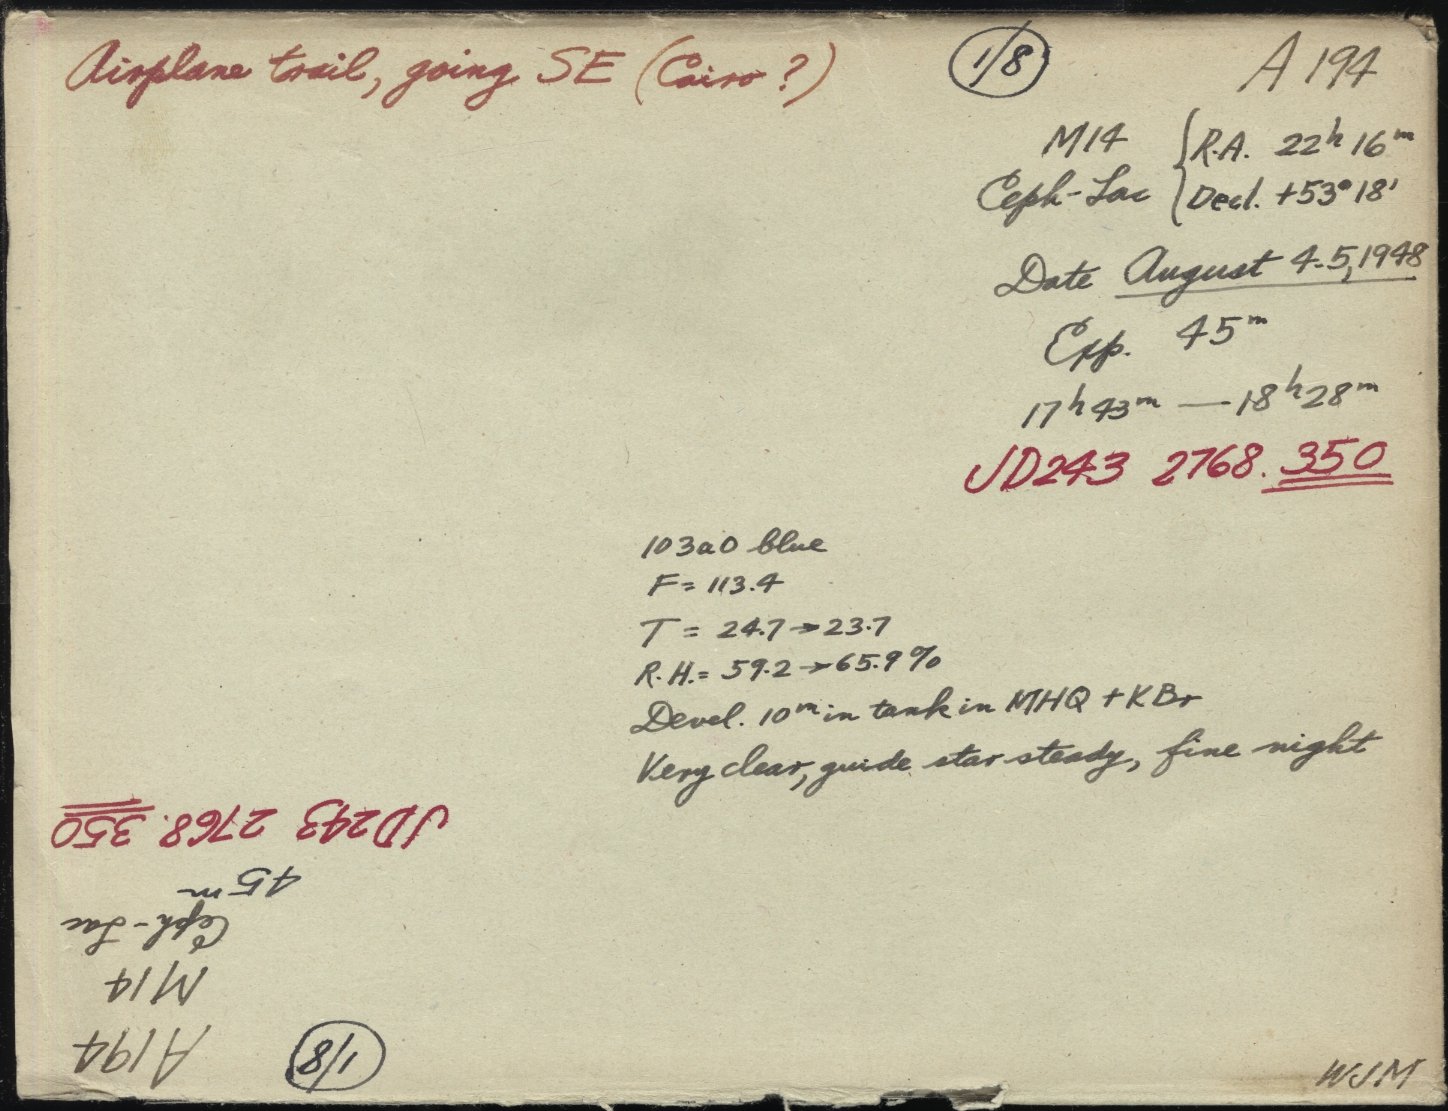 Airplane trail, going SE (Cairo ?)
1/8
A 194
M14 { R.A. 22h 16m
Ceph-Lac { Decl. +53° 18'
Date August 4-5, 1948
Exp. 45m
17h 43m — 18h 28m
JD243 2768.350
103aO blue
F = 113.4
T = 24.7 → 23.7
R.H. = 59.2 → 65.9%
Devel. 10m in tank in MHQ + KBr
Very clear, guide star steady, fine night
WJM
1/8
A194
M14
Ceph-Lac
45m
JD243 2768.350